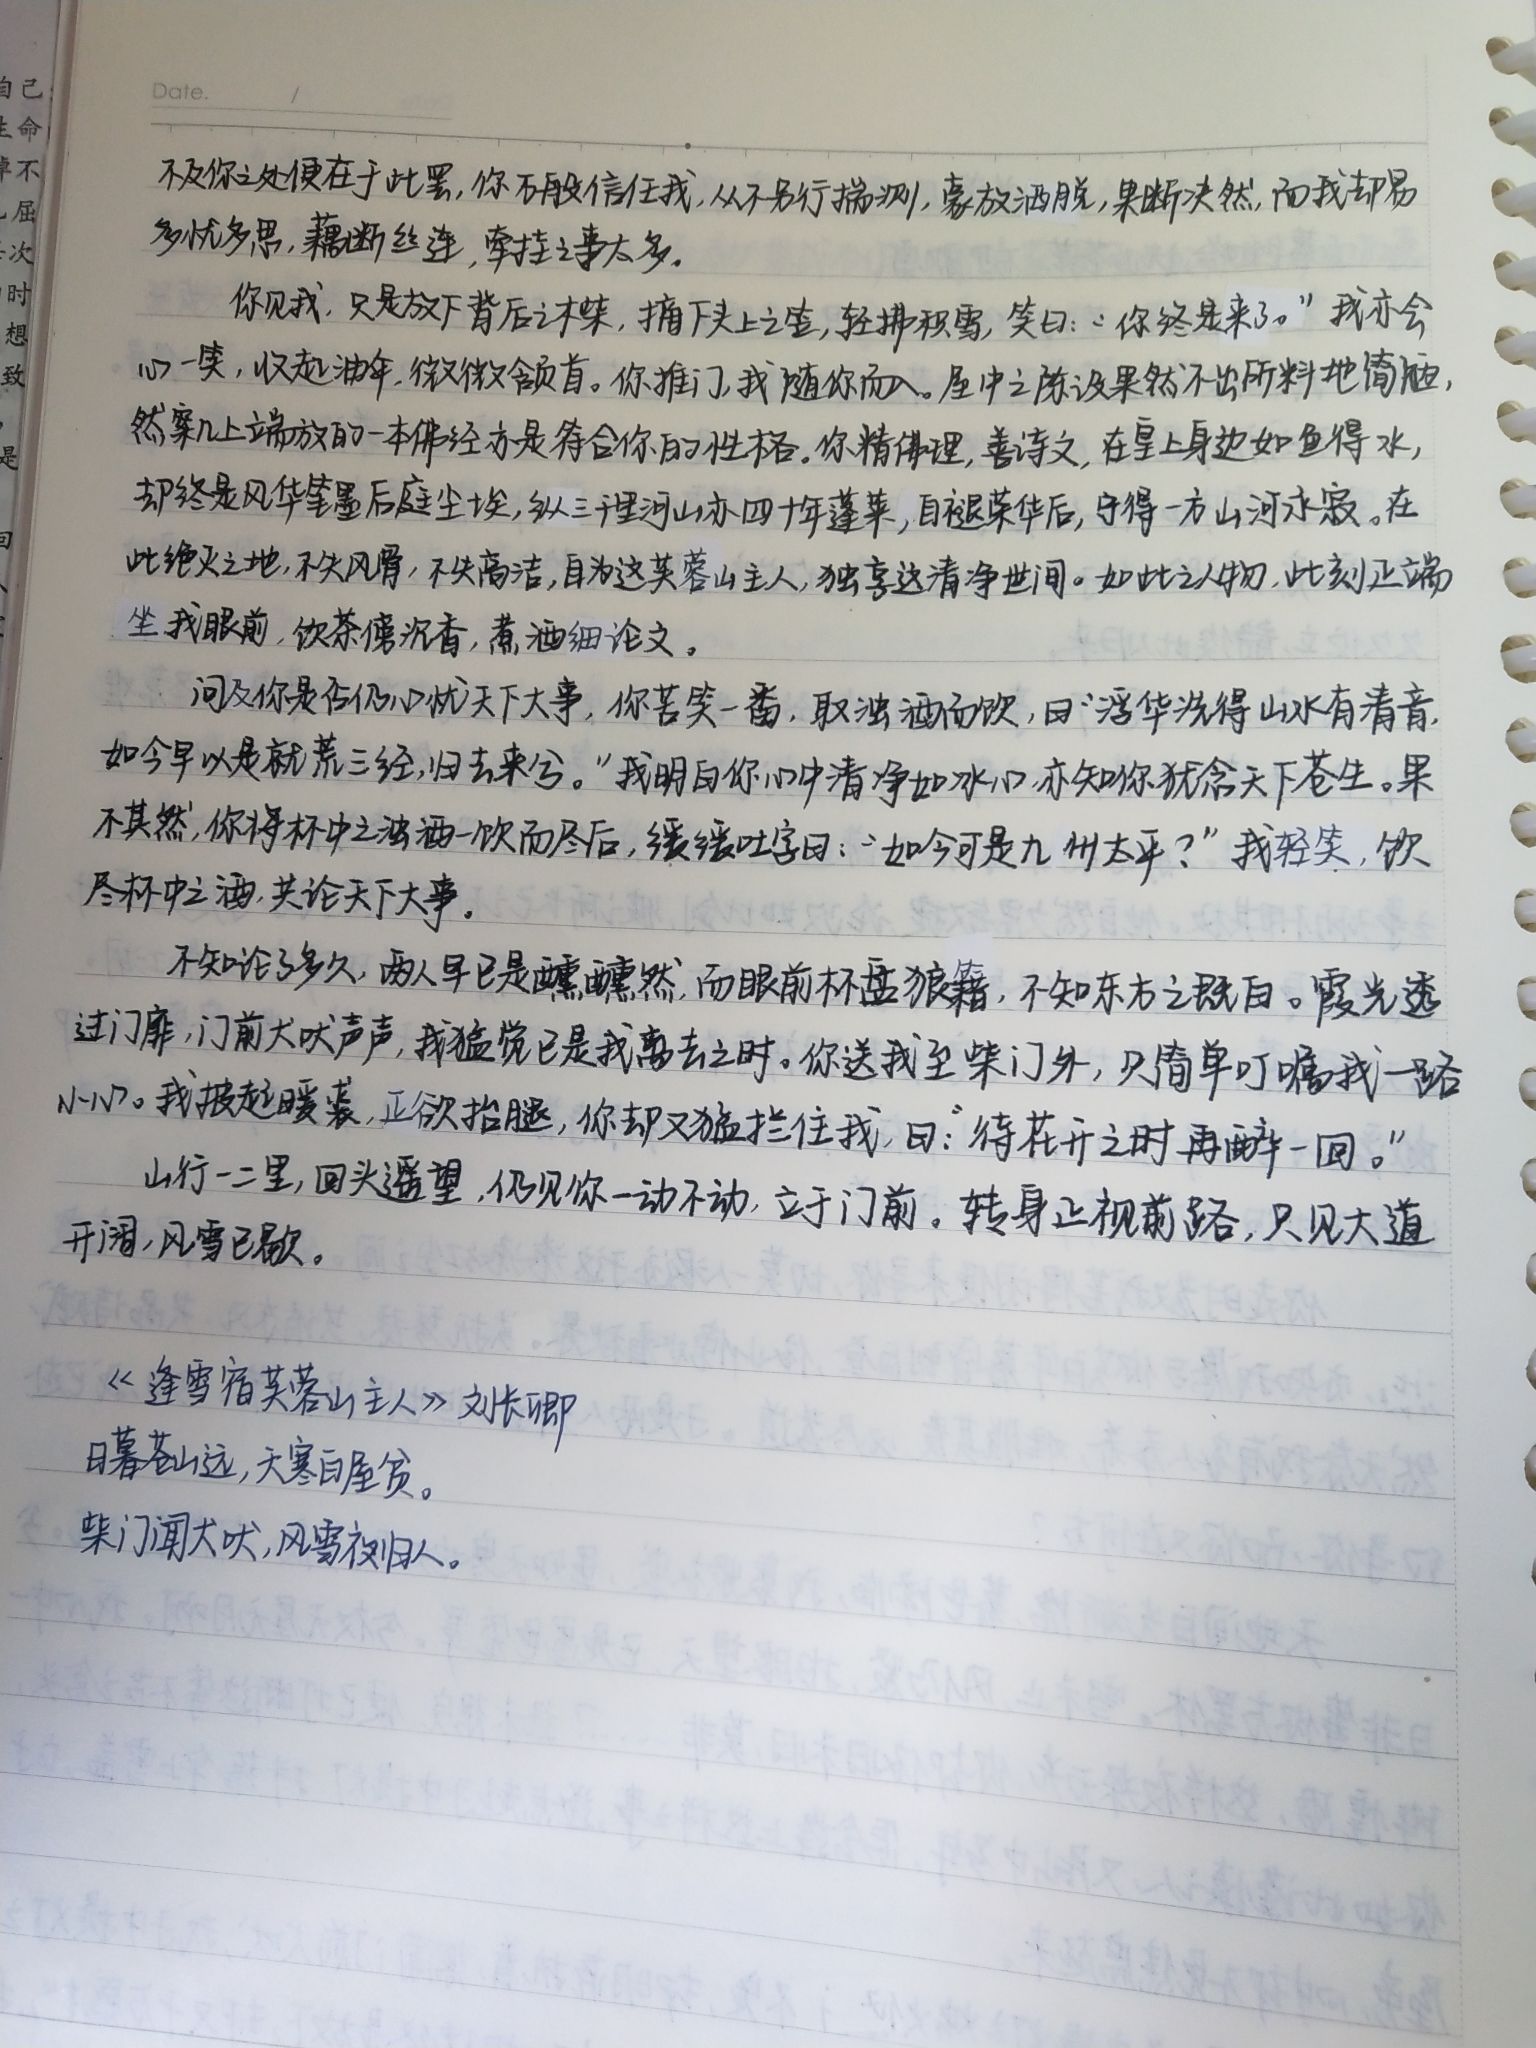 Date. /
不及你之处便在于此罢，你万般信任我，从不另行揣测，豪放洒脱，果断决然，而我却易
多忧多思，藕断丝连，牵挂之事太多。
你见我，只是放下背后之木柴，摘下头上之笠，轻拂积雪，笑曰：“你终是来了。”我亦会
心一笑，收起油伞，微微颔首。你推门，我随你而入。屋中之陈设果然不出所料地简陋，
然案几上端放的一本佛经亦是符合你的性格。你精佛理，善诗文，在皇上身边如鱼得水，
却终是风华笔墨后庭尘埃，纵三千里河山亦四十年蓬莱，自褪荣华后，守得一方山河永寂。在
此绝灭之地，不失风骨，不失高洁，自为这芙蓉山主人，独享这清净世间。如此之人物，此刻正端
坐我眼前，饮茶傍沉香，煮酒细论文。
问及你是否仍心忧天下大事，你苦笑一番，取浊酒而饮，曰“浮华洗得山水有清音，
如今早以是就荒三经，归去来兮。”我明白你心中清净如冰心，亦知你犹念天下苍生。果
不其然，你将杯中之浊酒一饮而尽后，缓缓吐字曰：“如今可是九州太平？”我轻笑，饮
尽杯中之酒，共论天下大事。
不知论了多久，两人早已是醺醺然，而眼前杯盘狼籍，不知东方之既白。霞光透
过门扉，门前犬吠声声，我猛觉已是我离去之时。你送我至柴门外，只简单叮嘱我一路
小心。我披起暖裘，正欲抬腿，你却又猛拦住我，曰：“待花开之时再醉一回。”
山行一二里，回头遥望，仍见你一动不动，立于门前。转身正视前路，只见大道
开阔，风雪已歇。
《逢雪宿芙蓉山主人》刘长卿
日暮苍山远，天寒白屋贫。
柴门闻犬吠，风雪夜归人。